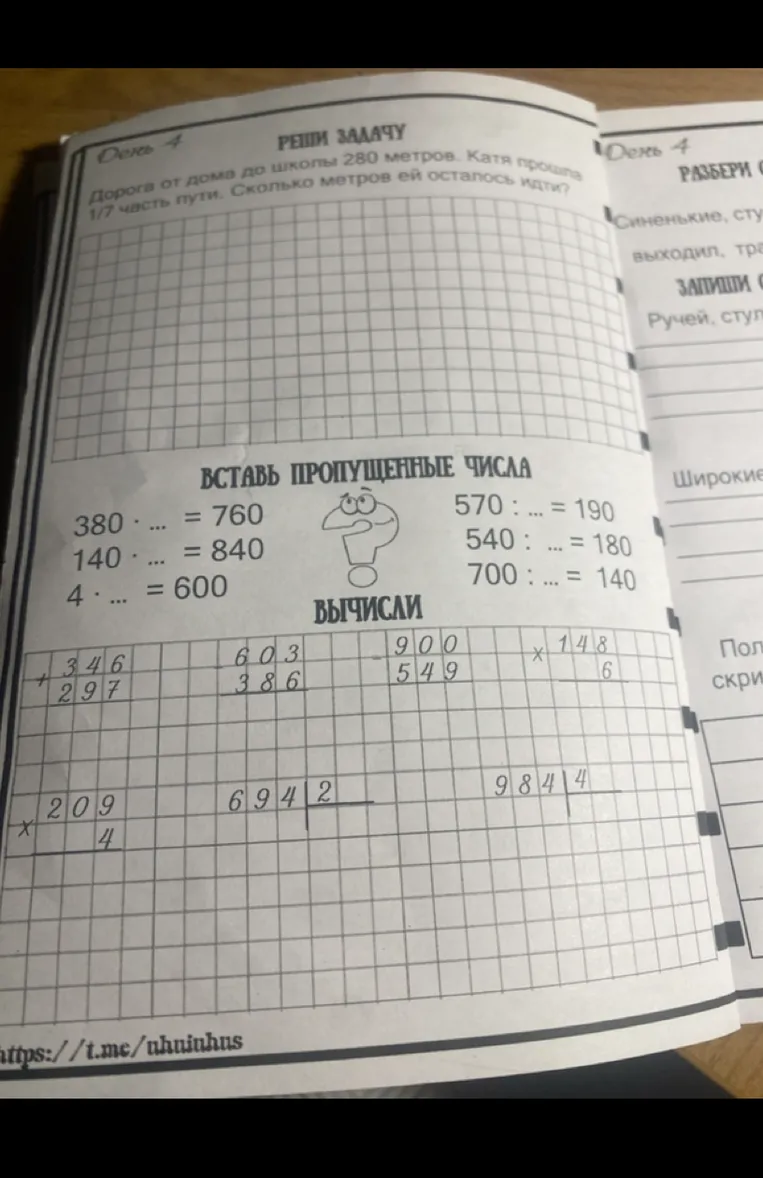 День 4
РЕШИ ЗАДАЧУ
Дорога от дома до школы 280 метров. Катя прошла
1/7 часть пути. Сколько метров ей осталось идти?
ВСТАВЬ ПРОПУЩЕННЫЕ ЧИСЛА
380 · ... = 760
140 · ... = 840
4 · ... = 600
570 : ... = 190
540 : ... = 180
700 : ... = 140
ВЫЧИСЛИ
+ 346
297
- 603
386
- 900
549
x 148
6
x 209
4
694 | 2
984 | 4
https://t.me/uhuiuhus
День 4
РАЗБЕРИ
Синенькие,
выходил,
ЗАПИШИ
Ручей,
Широкие